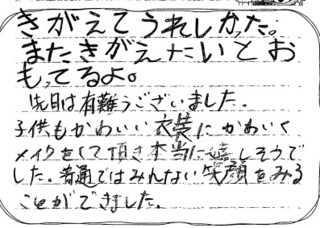 きがえてうれしかった。
またきがえたいとお
もってるよ。
先日は有難うございました.
子供もかわいい衣装にかわいく
メイクをして頂き本当に嬉しそうで
した。普通ではみれない笑顔をみる
ことができました.